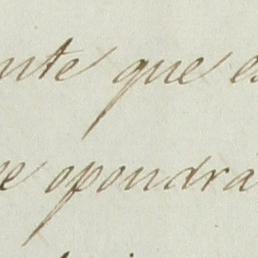 nte que e
se opondrá